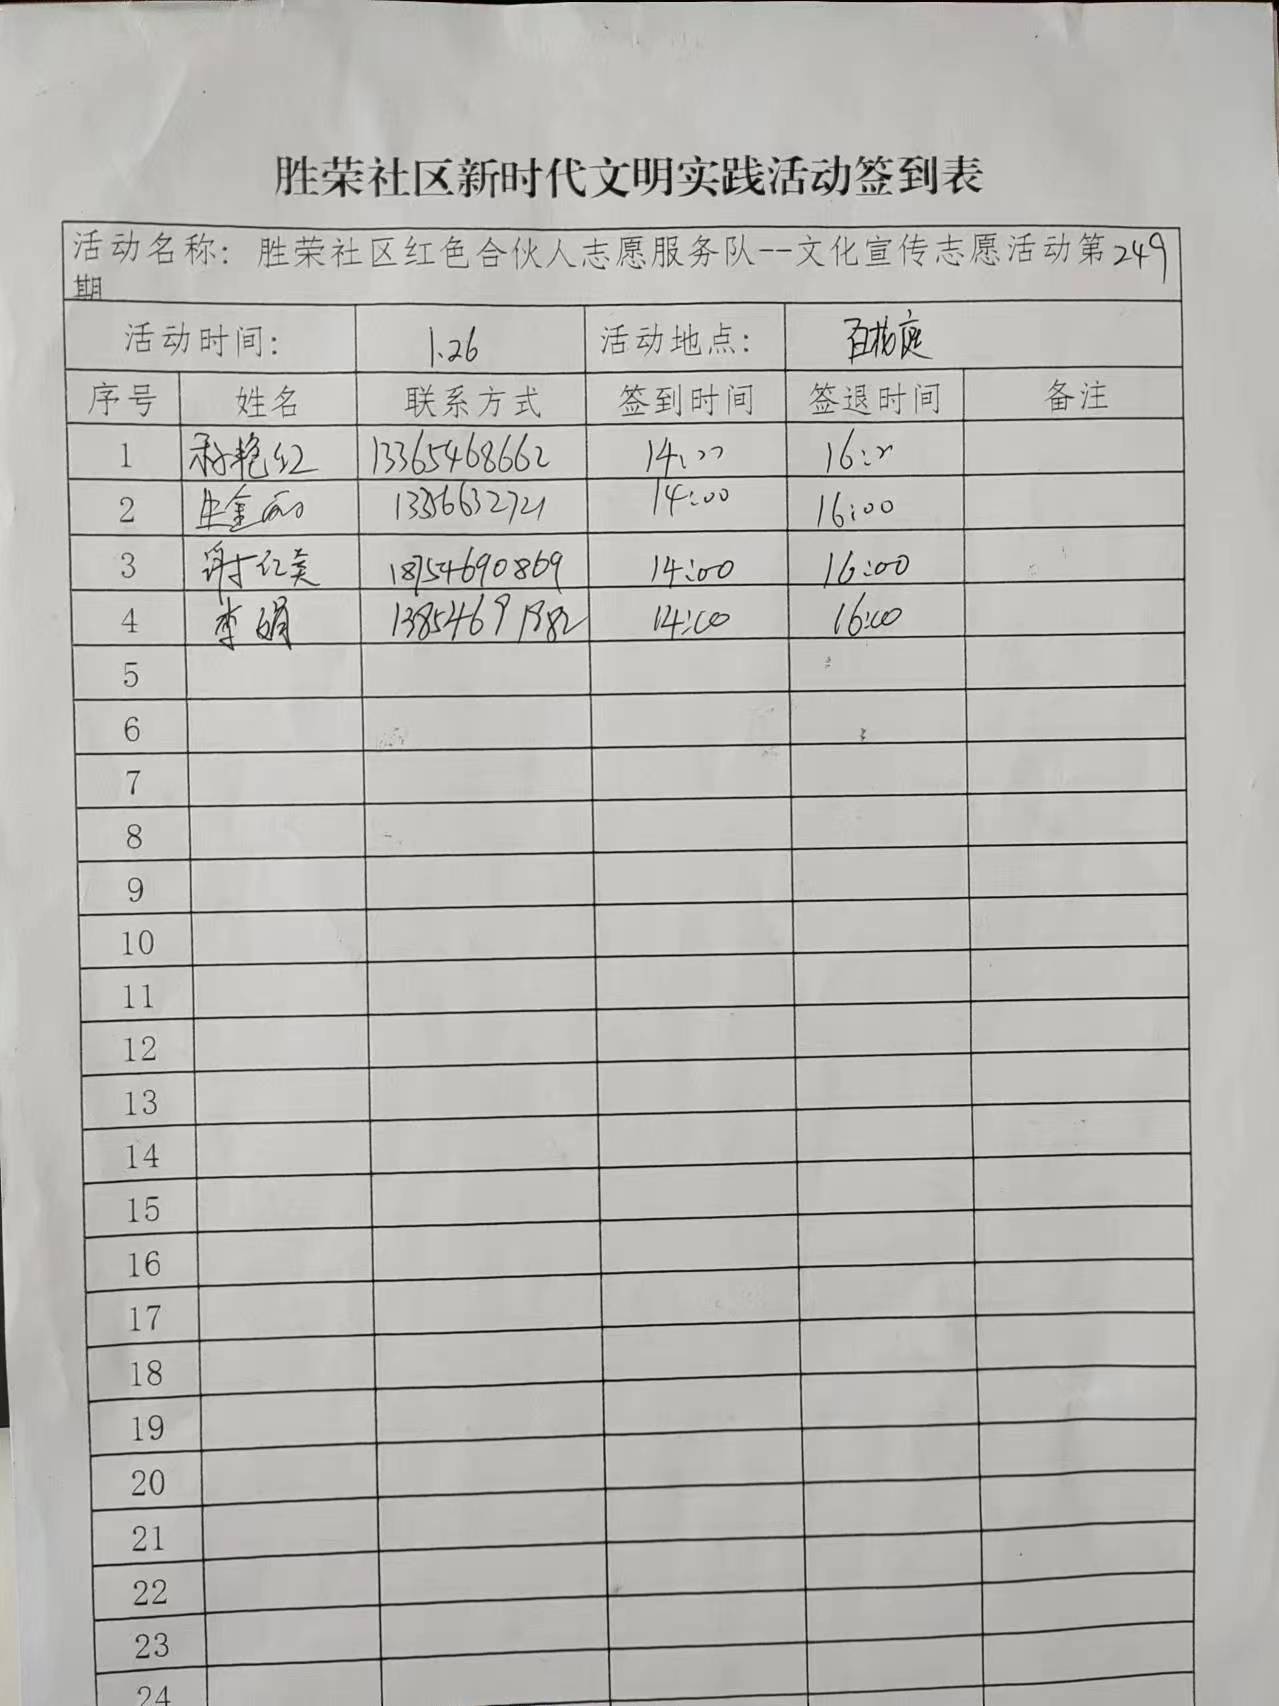 胜荣社区新时代文明实践活动签到表
活动名称：胜荣社区红色合伙人志愿服务队--文化宣传志愿活动第249
期
活动时间： 1.26 活动地点：
序号 姓名 联系方式 签到时间 签退时间 备注
1 艳红 13365468662 14:00 16:00
2 14:00 16:00
3 谢红英 18754690869 14:00 16:00
4 李娟 14:00 16:00
5
6
7
8
9
10
11
12
13
14
15
16
17
18
19
20
21
22
23
24